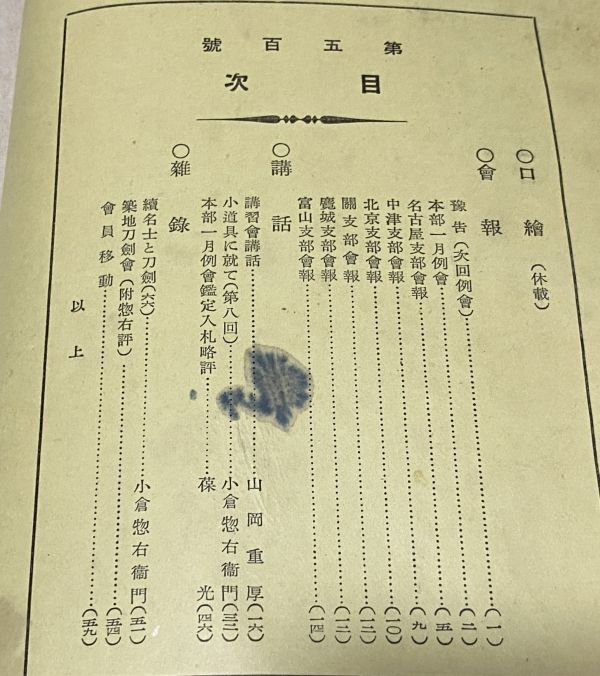 第五百號
目次
○口繪（休載）
○會報
豫告（次回例會）……（一）
本部一月例會……（二）
名古屋支部會報……（五）
中津支部會報……（九）
北京支部會報……（一〇）
關支部會報……（一二）
麑城支部會報……（一二）
富山支部會報……（一四）
○講話
講習會講話……山岡重厚（一六）
小道具に就て（第八回）……小倉惣右衞門（三二）
本部一月例會鑑定入札略評……葆光（四六）
○雜錄
續名士と刀劍（六六）……小倉惣右衞門（五一）
築地刀劍會（附惣右評）……（五四）
會員移動……（五九）
以上